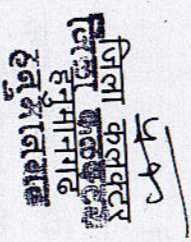 जिला कलक्टर
जिला कलक्टर
हनुमानगढ
हनुमानगढ